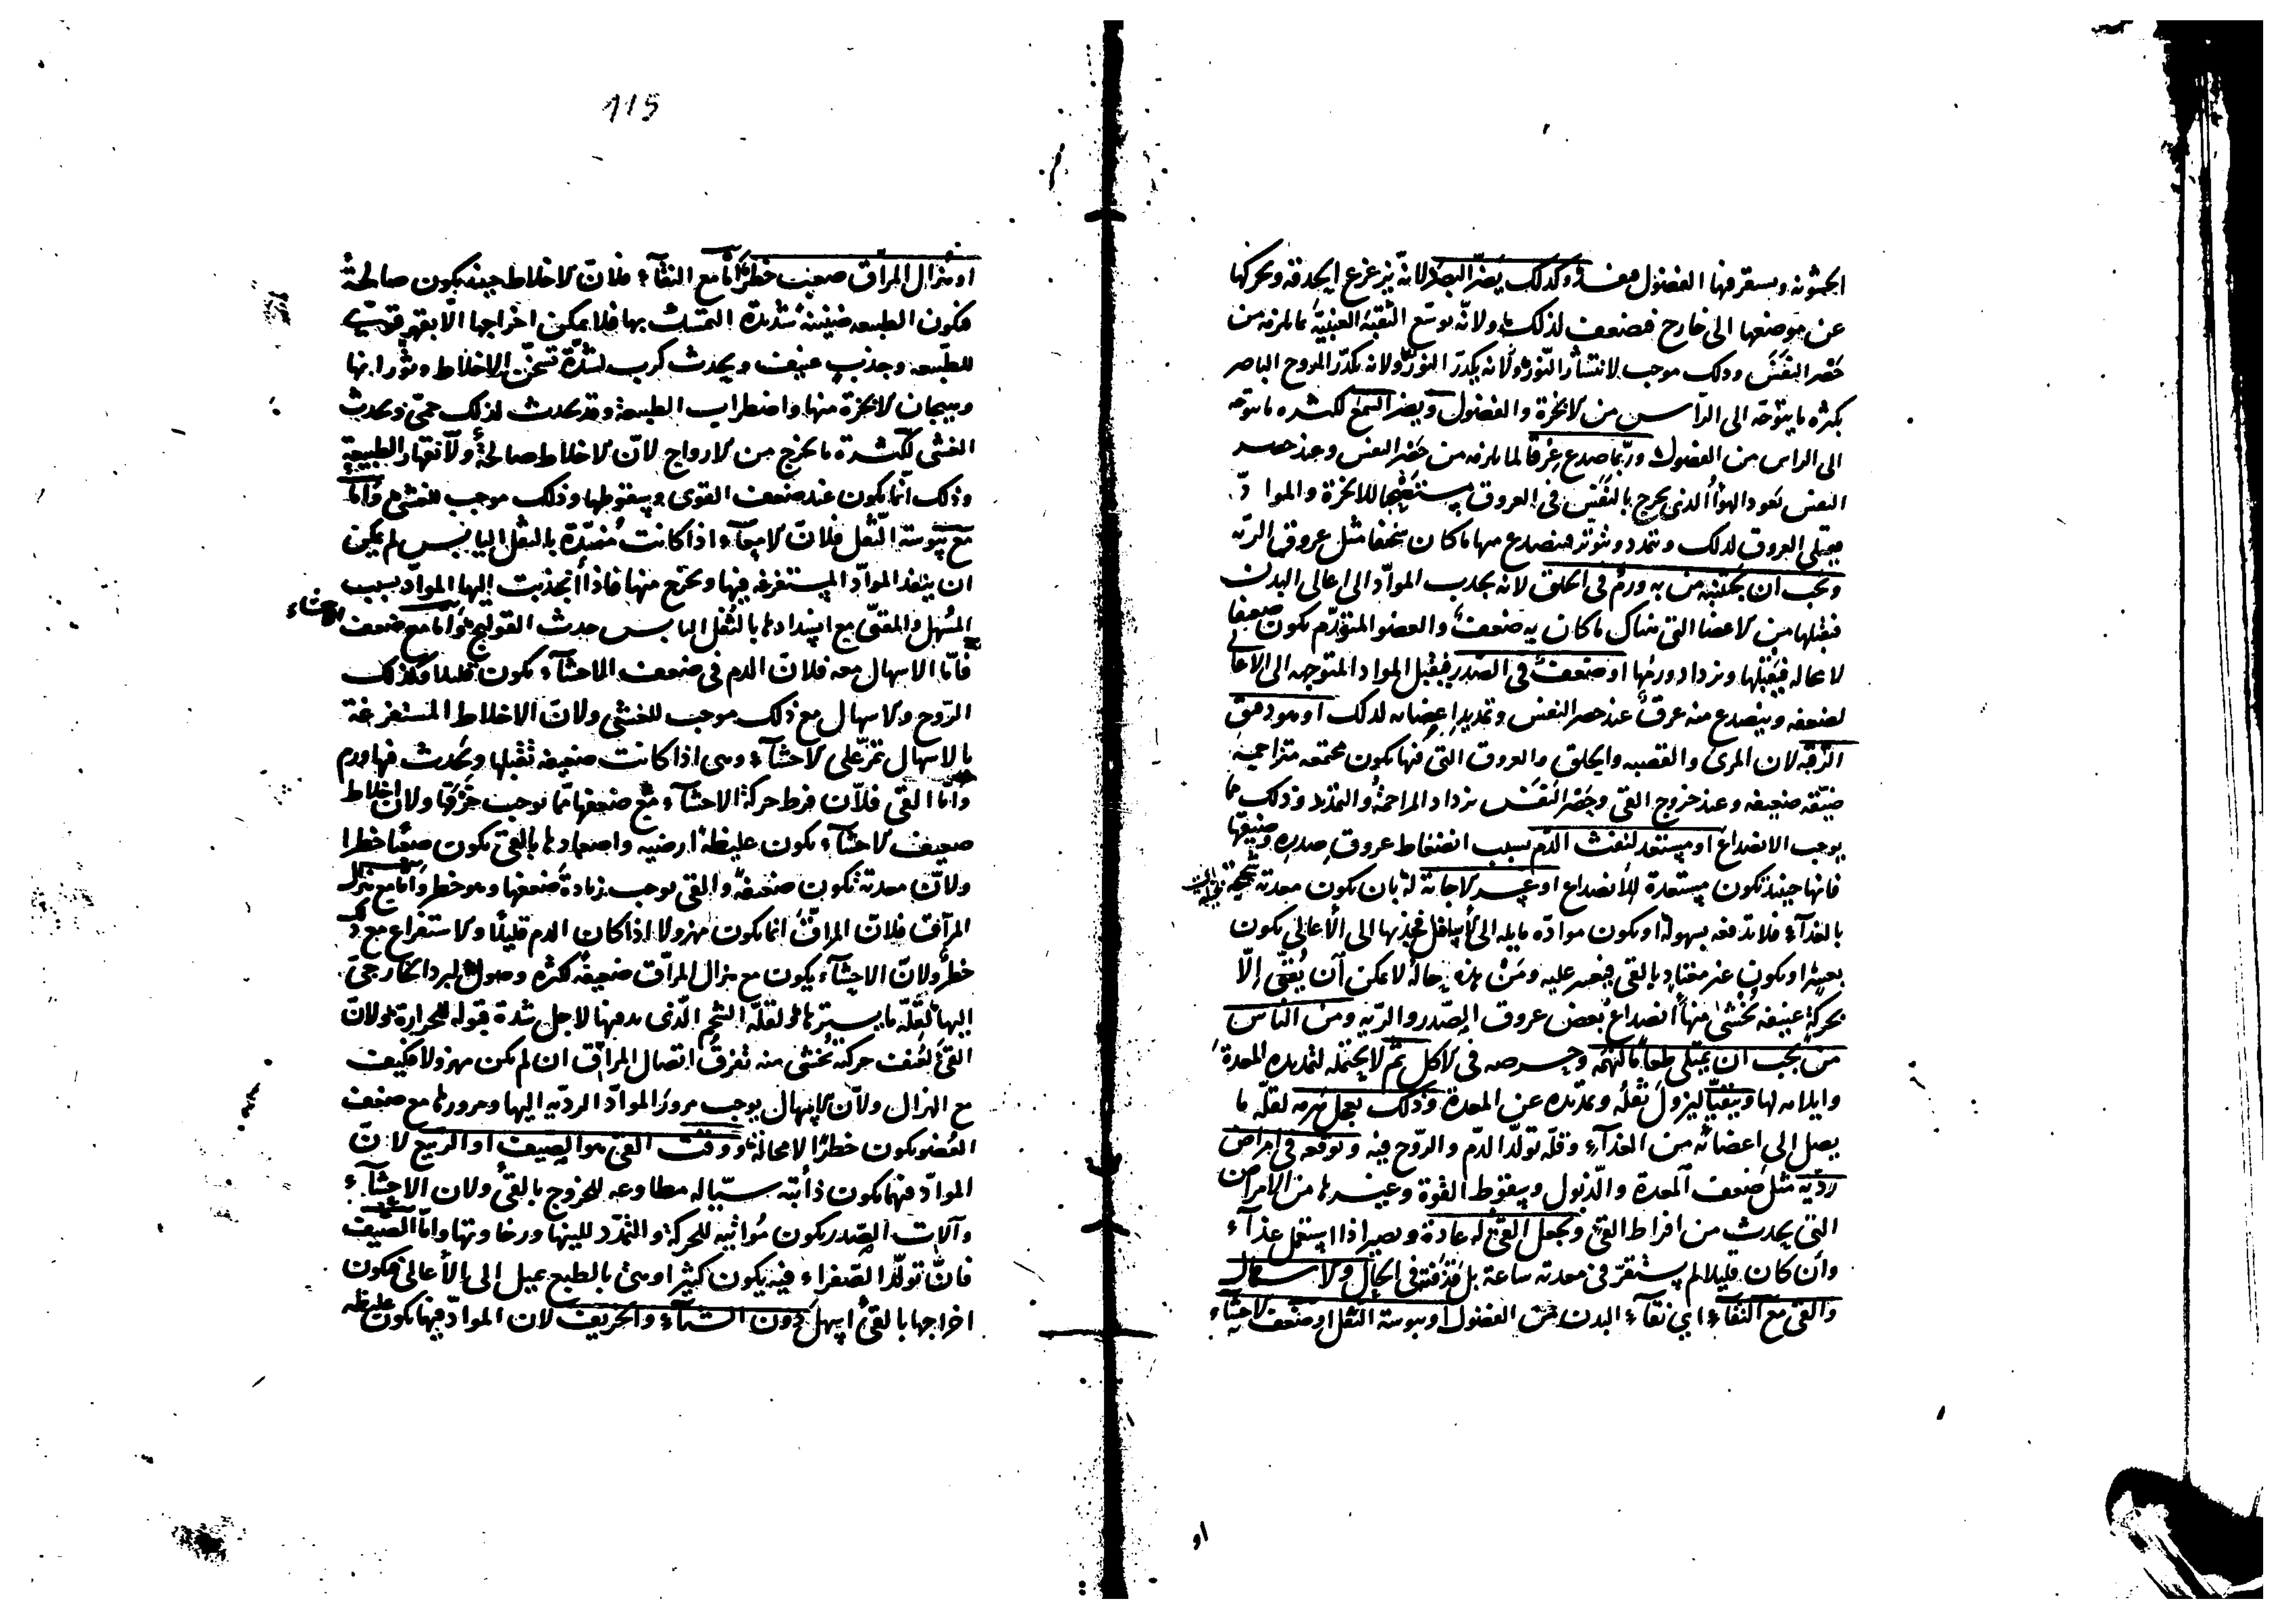 الخشونه ويستقر فيها الفضول معه وكذلك يضر البصر لانه يزعزع الحدقه ويحركها
عن موضعها الى خارج فيضعف لذلك ولانه يوسع الثقبة العنبية ما يلزمه من
حصر النفس وذلك موجب لانتشار النور ولانه يكدر النور ولانه يكدر الروح الباصر
بكثره ما يتوجه الى الراس من الابخرة والفضول ويضر السمع لكثره ما يتوجه
الى الراس من الفضول وربما صدع عرقا لما يلزمه من حصر النفس وعند حصر
النفس يعود الهواء الذى يخرج بالنفس فى العروق مستصحبا للابخرة والمواد
فيمتلى العروق لذلك ويتمدد ويتوتر فينصدع منها ما كان سخيفا مثل عروق الريه
ويجب ان يجتنبه من به ورم فى الحلق لانه يجذب المواد الى اعالى البدن
فيقبلها من الاعضا التى هناك ما كان به ضعف والعضو المتورم يكون ضعيفا
لا محاله فيقبلها ويزداد ورمها او ضعف فى الصدر فيقبل المواد المتوجه الى الاعالى
لضعفه وينصدع منه عرق عند حصر النفس وتمديد اعضائه لذلك او هو دقيق
الرقبه لان المرى والقصبه والحلق والعروق التى فيها يكون مجتمعه متزاحمه
ضيقه ضعيفه وعند خروج القى وحصر النفس يزداد المزاحمة والتمديد وذلك مما
يوجب الانصداع او مستعد لنفث الدم بسبب انضغاط عروق صدره وضيقها
فانها حينئذ يكون مستعدة للانصداع او عسر الاجابة له بان يكون معدته شحيحة
بالغذاء فلا تدفعه بسهولة او يكون مواده مايله الى الاسافل فجذبها الى الاعالى يكون
بعسر او يكون غير معتاد بالقى فيعسر عليه ومن هذه حاله لا يمكن ان يقى الا
بحركة عنيفه يخشى منها انصداع بعض عروق الصدر والريه ومن الناس
من يحب ان يمتلى طعاما لنهمه وحرصه فى الاكل ثم لا يحتمله لتمديده المعدة
وايلامه لها ويتقيا ليزول ثقله وتمدده عن المعدة وذلك يعجل هرمه لقلة ما
يصل الى اعضائه من الغذاء وقلة تولد الدم والروح فيه ويوقعه فى امراض
رديه مثل ضعف المعدة والذبول وسقوط القوة وغيرها من الامراض
التى يحدث من افراط القى ويجعل القى له عادة ويصير اذا استعمل غذاء
وان كان قليلا لم يستقر فى معدته ساعة بل قذفته فى الحال والاسهال
والقى مع النقاء اى نقاء البدن من الفضول او يبوسة الثفل او ضعف الاحشاء
او
115
او هزال المراق صعب خطر اما مع النقاء فلان الاخلاط حينئذ يكون صالحة
فيكون الطبيعه ضنينة شديدة التمسك بها فلا يمكن اخراجها الا بقهر قوى
للطبيعه وجذب عنيف ويحدث كرب لشدة تسخن الاخلاط وثورانها
وهيجان الابخرة منها واضطراب الطبيعة وقد يحدث لذلك حمى ويحدث
الغشى لكثرة ما يخرج من الارواح لان الاخلاط صالحة ولانقهار الطبيعة
وذلك انما يكون عند ضعف القوى وسقوطها وذلك موجب للغشى واما
مع يبوسة الثفل فلان الامعاء اذا كانت منسدة بالثفل اليابس لم يمكن
ان ينفذ المواد المستفرغه فيها ويخرج منها فاذا انجذبت اليها المواد بسبب
المسهل والمقى مع انسدادها بالثفل اليابس حدث القولنج واما مع ضعف الاحشاء
فاما الاسهال معه فلان الدم فى ضعف الاحشاء يكون قليلا وكذلك
الروح والاسهال مع ذلك موجب للغشى ولان الاخلاط المستفرغة
بالاسهال تمر على الاحشاء وهى اذا كانت ضعيفه تقبلها ويحدث فيها ورم
واما القى فلان فرط حركة الاحشاء مع ضعفها مما يوجب خرقها ولان اخلاط
ضعيف الاحشاء يكون غليظة ارضيه واصعادها بالقى يكون صعبا خطرا
ولان معدته يكون ضعيفة والقى يوجب زيادة ضعفها وهو خطر واما مع هزال
المراق فلان المراق انما يكون مهزولا اذا كان الدم قليلا والاستفراغ مع ذلك
خطر ولان الاحشاء يكون مع هزال المراق ضعيفة لكثرة وصول البرد الخارجى
اليها لقلة ما يسترها ولقلة الشحم الذى يدفيها لاجل شدة قبوله للحرارة ولان
القى لعنف حركته يخشى منه تفرق اتصال المراق ان لم يكن مهزولا فكيف
مع الهزال ولان الاسهال يوجب مرور المواد الرديه اليها ومرورها مع ضعف
العضو يكون خطرا لا محالة ووقت القى هو الصيف او الربيع لان
المواد فيهما يكون ذائبه سياله مطاوعه للخروج بالقى ولان الاحشاء
وآلات الصدر يكون مواتيه للحركة والتمدد للينها ورخاوتها واما الصيف
فان تولد الصفراء فيه يكون كثيرا وهى بالطبع يميل الى الاعالى فيكون
اخراجها بالقى اسهل دون الشتاء والخريف لان المواد فيهما يكون غليظه